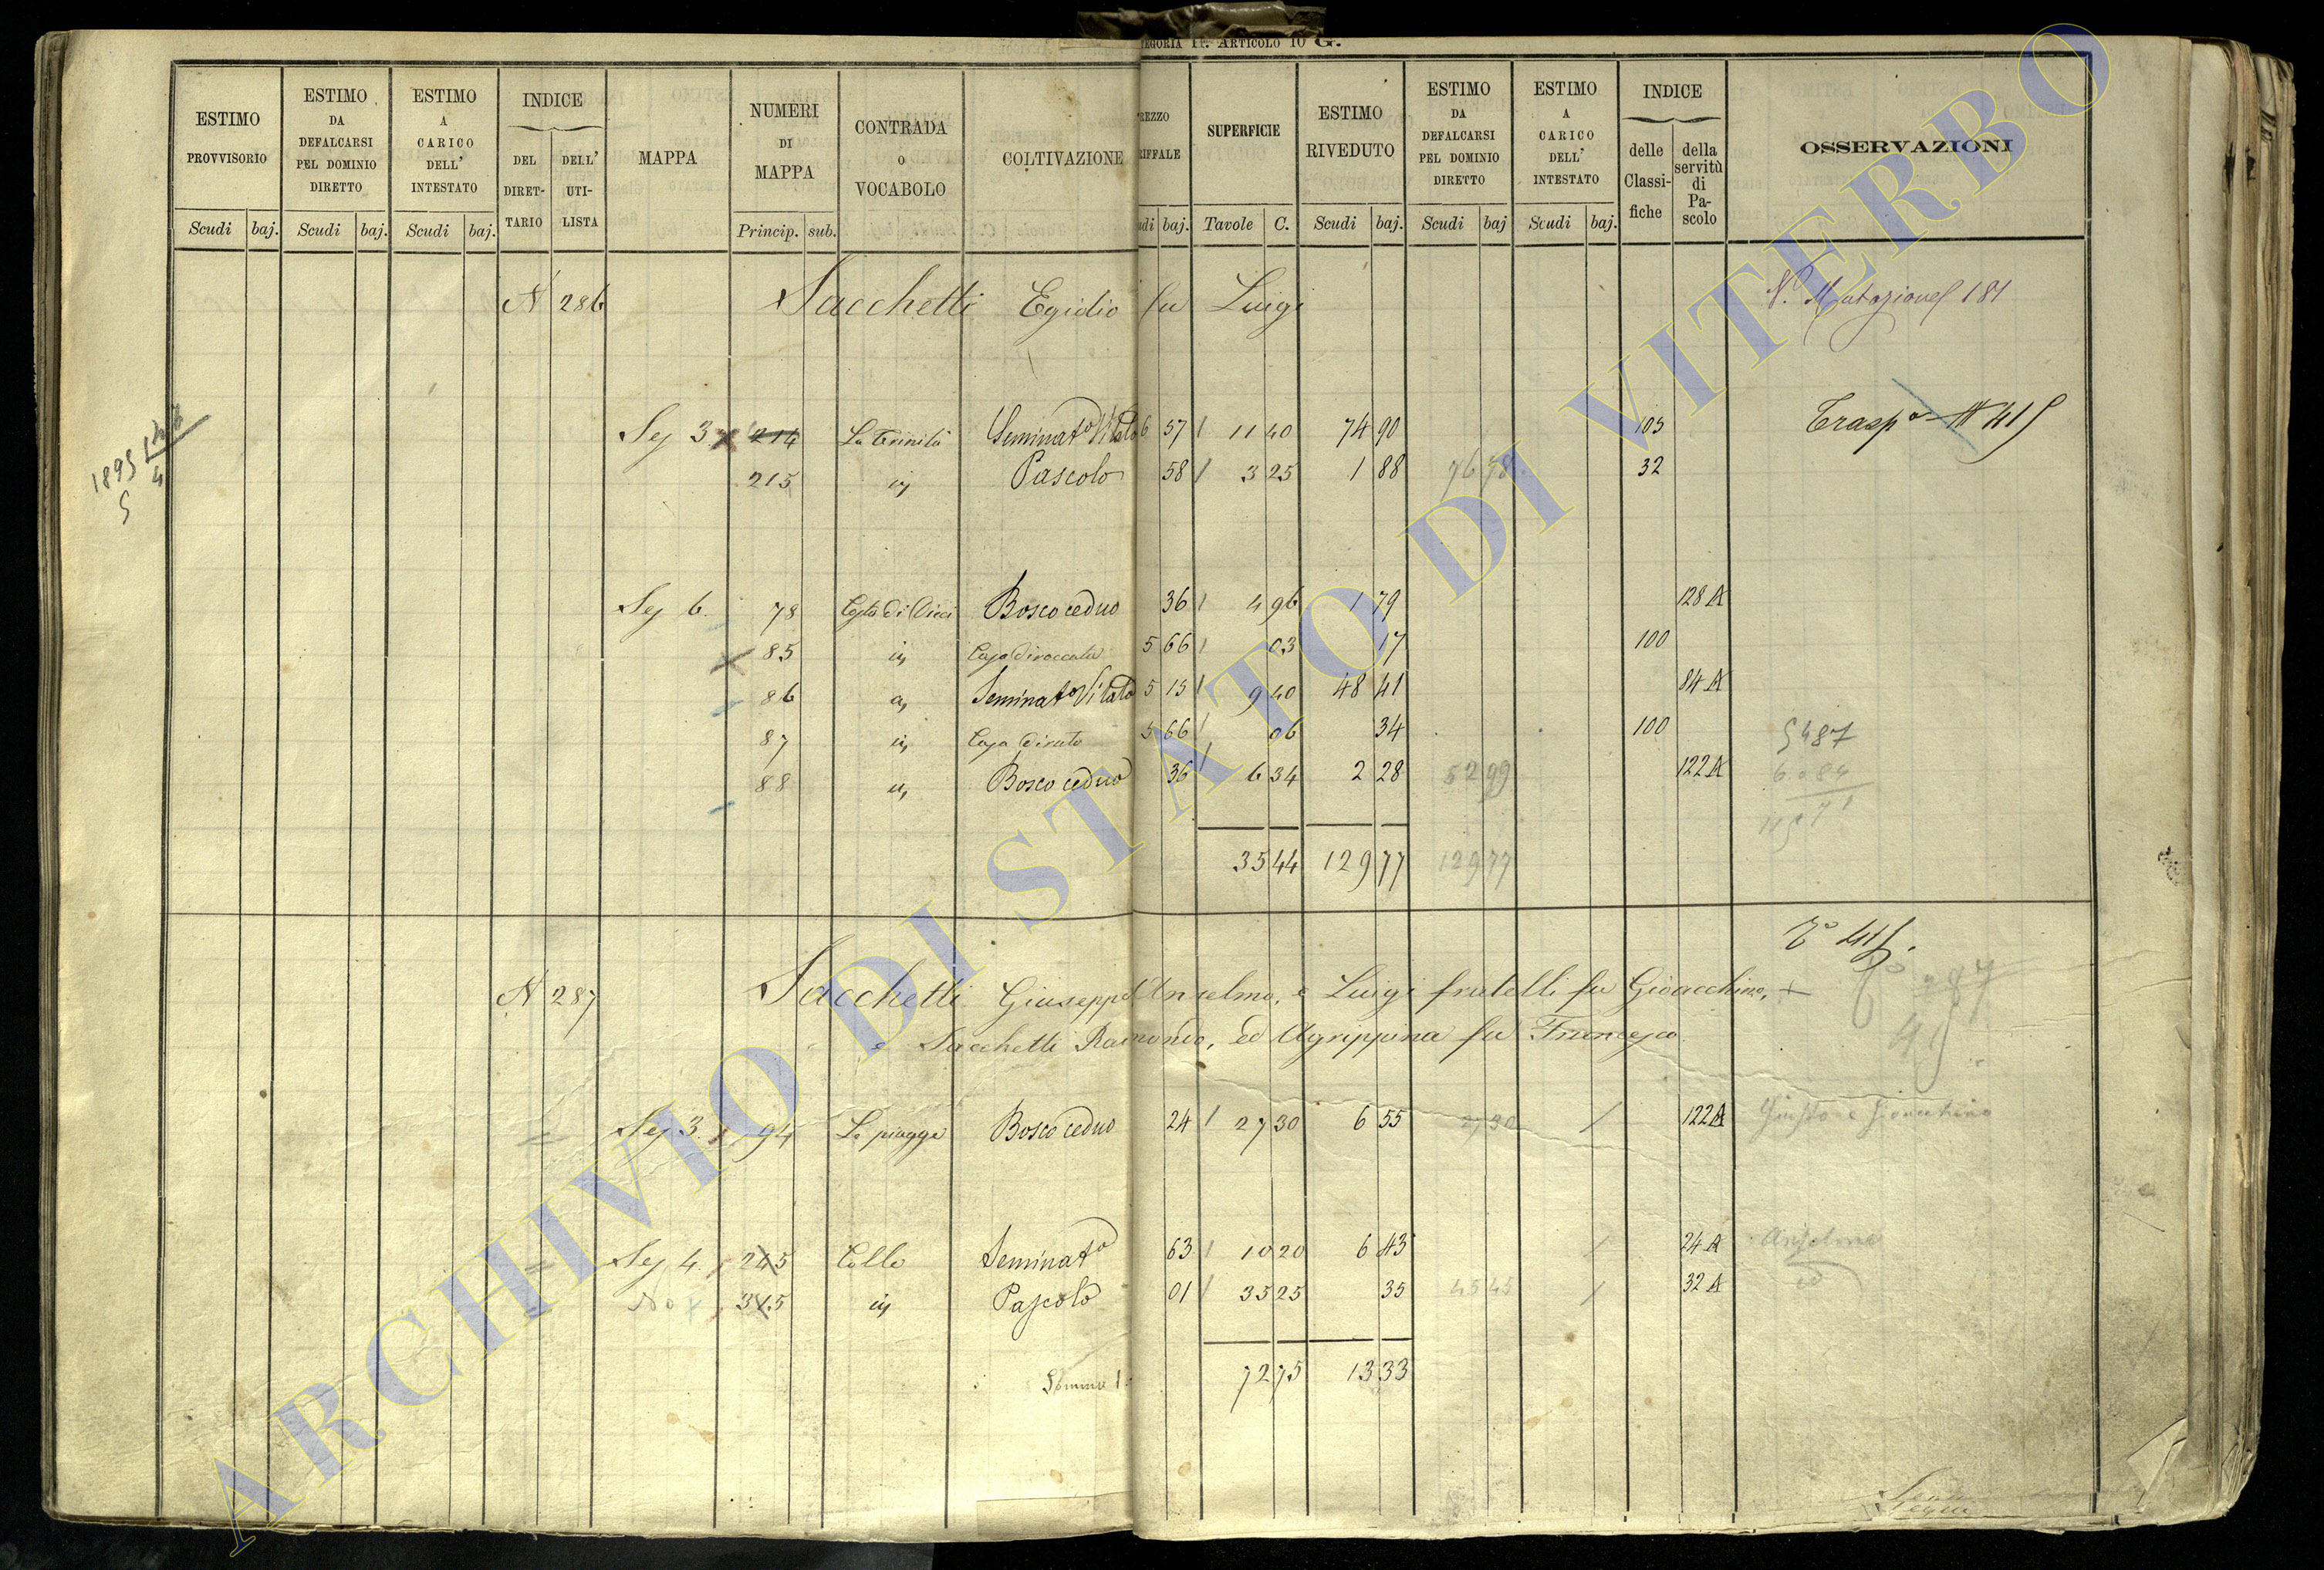 Categoria I. Articolo 10 G.
ESTIMO PROVVISORIO Scudi baj.
ESTIMO DA DEFALCARSI PEL DOMINIO DIRETTO Scudi baj.
ESTIMO A CARICO DELL' INTESTATO Scudi baj.
INDICE DEL DIRET-TARIO DELL' UTI-LISTA
MAPPA
NUMERI DI MAPPA Princip. sub.
CONTRADA O VOCABOLO
COLTIVAZIONE
SUPERFICIE Tavole C.
ESTIMO RIVEDUTO Scudi baj.
ESTIMO DA DEFALCARSI PEL DOMINIO DIRETTO Scudi baj
ESTIMO A CARICO DELL' INTESTATO Scudi baj.
INDICE delle Classi-fiche della servitù di Pa-scolo
OSSERVAZIONI
N 286 Sacchetti Egidio fu Luigi N. Mutazione 181
Sez 3 214 La Trinità Seminato Vitato 6 57 11 40 74 90 105
215 Pascolo 58 3 25 1 88 76 78 32
1895
Sez 6. 78 Bosco ceduo 36 4 96 1 79 128 A
85 Casa diroccata 5 66 03 17 100
86 Seminato Vitato 5 15 9 40 48 41 84 A
87 Casa diruta 5 66 06 34 100 5487
88 Bosco ceduo 36 6 34 2 28 52 99 122 A 6084
35 44 129 77 129 77
N 287 Sacchetti Giuseppe Anselmo, e Luigi fratelli fu Gioacchino, +
e Sacchetti Raimondo, ed Agrippina fu Francesco
Sez 3. 94 Le piagge Bosco ceduo 24 27 30 6 55 27 30 122 A
Sez 4. 245 Collo Seminato 63 10 20 6 43 24 A Anselmo
315 Pascolo 01 35 25 35 45 45 32 A
72 75 13 33
Segue
ARCHIVIO DI STATO DI VITERBO